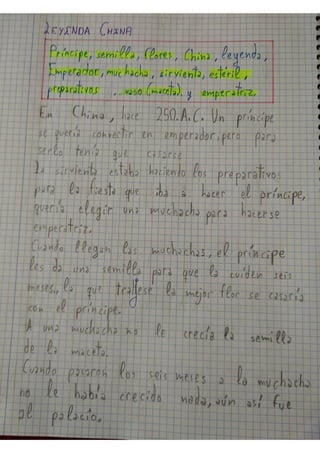 LEYENDA CHINA
Príncipe, semilla, flores, China, leyenda,
Emperador, muchacha, sirvienta, estéril,
preparativos, vaso (maceta) y emperatriz.
En China, hace 250.A.C. Un príncipe
se quería convertir en emperador, pero para
serlo tenía que casarse
La sirvienta estaba haciendo los preparativos
para la fiesta que iba a hacer el príncipe,
quería elegir una muchacha para hacerse
emperatriz.
Cuando llegan las muchachas, el príncipe
les da una semilla para que la cuiden seis
meses, la que trajese la mejor flor se casaría
con el príncipe.
A una muchacha no le crecía la semilla
de la maceta.
Cuando pasaron los seis meses a la muchacha
no le había crecido nada, aún así fue
al palacio.